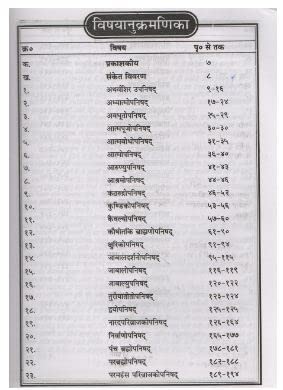 विषयानुक्रमणिका
क्र० विषय पृ० से तक
क. प्रकाशकीय ७
ख. संकेत विवरण ८
१. अथर्वशिर उपनिषद् ९-१६
२. अध्यात्मोपनिषद् १७-२४
३. अवधूतोपनिषद् २५-२९
४. आत्मपूजोपनिषद् ३०-३०
५. आत्मबोधोपनिषद् ३१-३५
६. आत्मोपनिषद् ३६-४०
७. आरुण्युपनिषद् ४१-४३
८. आश्रमोपनिषद् ४४-४६
९. कठरुद्रोपनिषद् ४६-५२
१०. कुण्डिकोपनिषद् ५३-५६
११. कैवल्योपनिषद् ५७-६०
१२. कौषीतकि ब्राह्मणोपनिषद् ६१-९०
१३. क्षुरिकोपनिषद् ९१-९४
१४. जाबालदर्शनोपनिषद् ९५-११५
१५. जाबालोपनिषद् ११६-११९
१६. जाबाल्युपनिषद् १२०-१२२
१७. तुरीयातीतोपनिषद् १२३-१२४
१८. द्वयोपनिषद् १२५-१२५
१९. नारदपरिव्राजकोपनिषद् १२६-१६४
२०. निर्वाणोपनिषद् १६५-१७७
२१. पंच ब्रह्मोपनिषद् १७८-१८१
२२. परब्रह्मोपनिषद् १८२-१८८
२३. परमहंस परिव्राजकोपनिषद् १८९-१९४